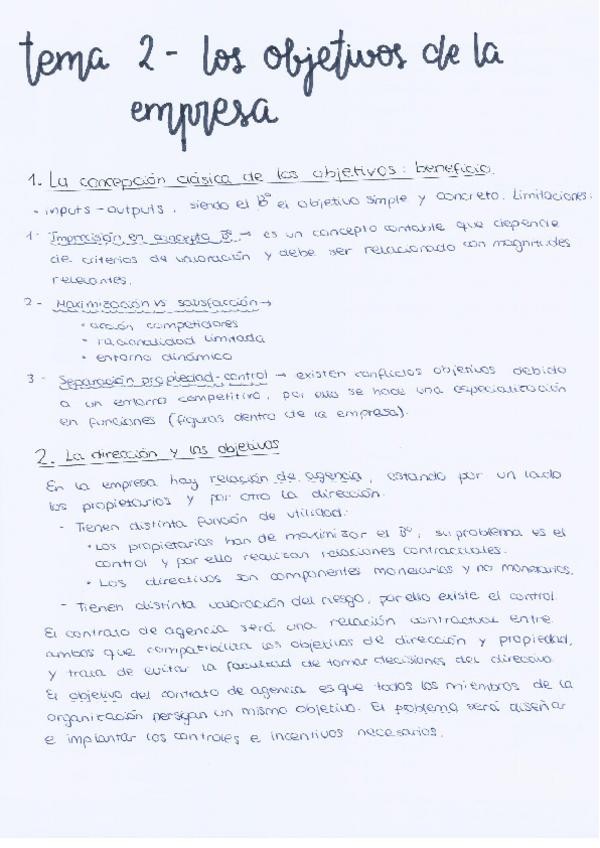 tema 2 - los objetivos de la
empresa
1. La concepción clásica de los objetivos: beneficio.
- inputs - outputs, siendo el Bº el objetivo simple y concreto. Limitaciones:
1- Imprecisión en concepto Bº → es un concepto contable que depende
de criterios de valoración y debe ser relacionado con magnitudes
relevantes.
2- Maximización vs satisfacción →
• acción competidores
• racionalidad limitada
• entorno dinámico
3- Separación propiedad-control → existen conflictos objetivos debido
a un entorno competitivo, por ello se hace una especialización
en funciones (figuras dentro de la empresa).
2. La dirección y los objetivos
En la empresa hay relación de agencia, estando por un lado
los propietarios y por otro la dirección.
- Tienen distinta función de utilidad:
• Los propietarios han de maximizar el Bº, su problema es el
control y por ello realizan relaciones contractuales.
• Los directivos son componentes monetarios y no monetarios.
- Tienen distinta valoración del riesgo, por ello existe el control.
El contrato de agencia será una relación contractual entre
ambos que compatibiliza los objetivos de dirección y propiedad,
y trata de evitar la facultad de tomar decisiones del directivo.
El objetivo del contrato de agencia es que todos los miembros de la
organización persigan un mismo objetivo. El problema será diseñar
e implantar los controles e incentivos necesarios.